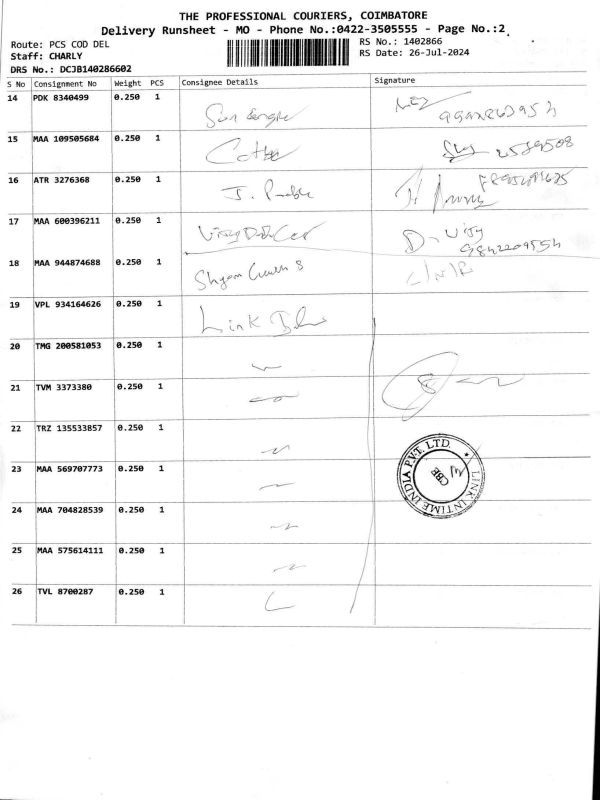 THE PROFESSIONAL COURIERS, COIMBATORE
Delivery Runsheet - MO - Phone No.:0422-3505555 - Page No.:2
Route: PCS COD DEL
RS No.: 1402866
Staff: CHARLY
RS Date: 26-Jul-2024
DRS No.: DCJB140286602
S No Consignment No Weight PCS Consignee Details Signature
14 PDK 8340499 0.250 1
15 MAA 109505684 0.250 1
16 ATR 3276368 0.250 1 J.
17 MAA 600396211 0.250 1 D. Vijy
9842209554
18 MAA 944874688 0.250 1 Shyam
19 VPL 934164626 0.250 1 Link
20 TMG 200581053 0.250 1
21 TVM 3373380 0.250 1
22 TRZ 135533857 0.250 1
23 MAA 569707773 0.250 1
24 MAA 704828539 0.250 1
25 MAA 575614111 0.250 1
26 TVL 8700287 0.250 1
LINK INTIME INDIA PVT. LTD
CBE